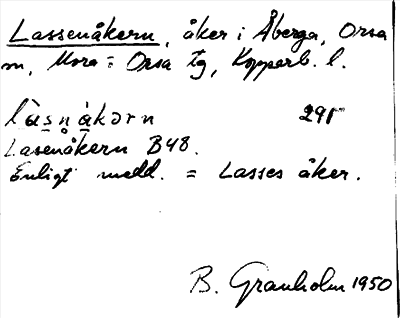 Lassenåkern, åker i Åberga, Orsa
m, Mora o Orsa tg, Kopparb. l.
làsnåkərn 295
Lasenåkern B48.
Enligt medd. = Lasses åker.
B. Granholm 1950